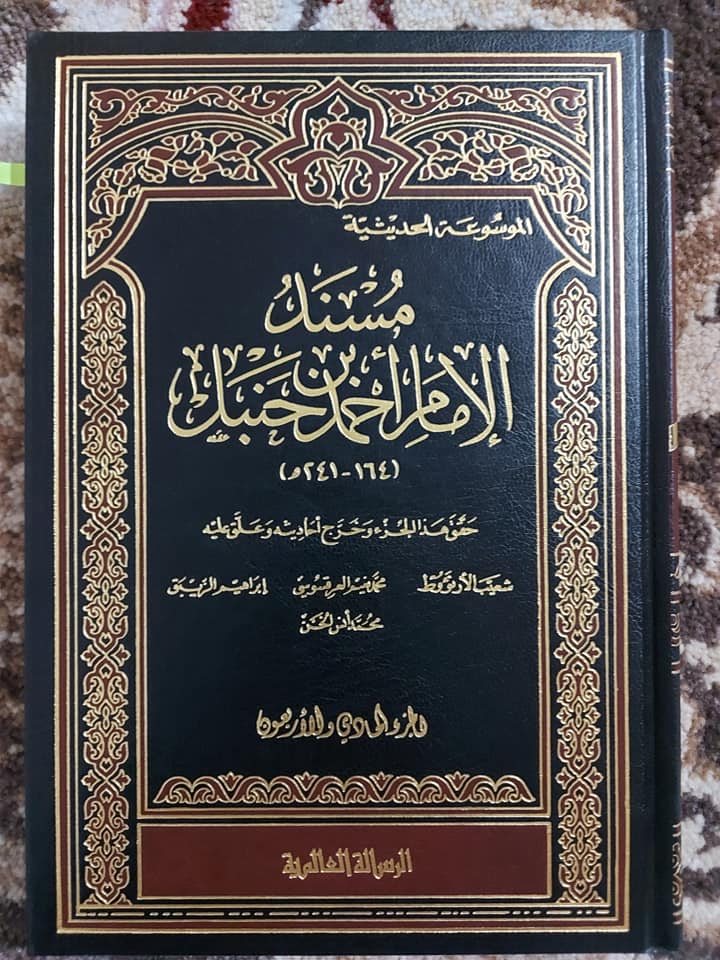 الموسوعة الحديثية
مُسْنَدُ
الإمام أحمد بن حنبل
(١٦٤ - ٢٤١ هـ)
حقق هذا الجزء وخرج أحاديثه وعلق عليه
شعيب الأرنؤوط محمد نعيم العرقسوسي إبراهيم الزيبق
محمد أنس الخن
الجزء الحادي والأربعون
الرسالة العالمية